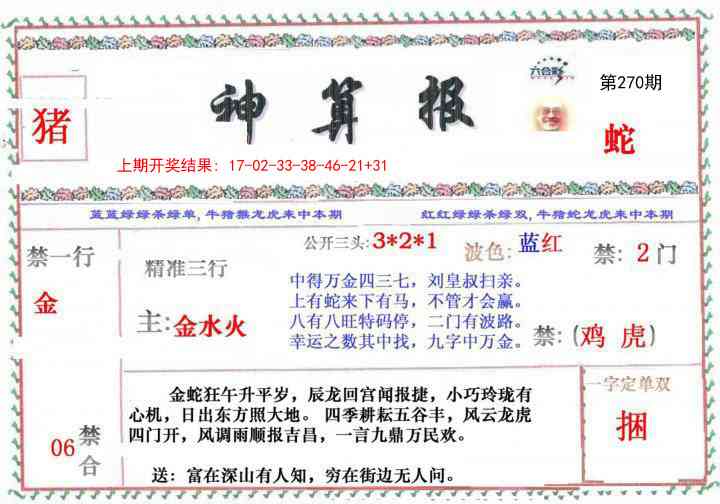 六合彩
第270期
猪
神算报
蛇
上期开奖结果：17-02-33-38-46-21+31
蓝蓝绿绿杀绿单,牛猪猴龙虎来中本期
红红绿绿杀绿双,牛猪蛇龙虎来中本期
禁一行
金
精准三行
主:金水火
公开三头:3*2*1
波色:蓝红
禁:2门
中得万金四三七，刘皇叔扫亲。
上有蛇来下有马，不管才会赢。
八有八旺特码停，二门有波路。
幸运之数其中找，九字中万金。
禁:(鸡 虎)
06
禁合
金蛇狂午升平岁，辰龙回宫闻报捷，小巧玲珑有
心机，日出东方照大地。 四季耕耘五谷丰，风云龙虎
四门开，风调雨顺报吉昌，一言九鼎万民欢。
送：富在深山有人知，穷在街边无人问。
一字定单双
捆